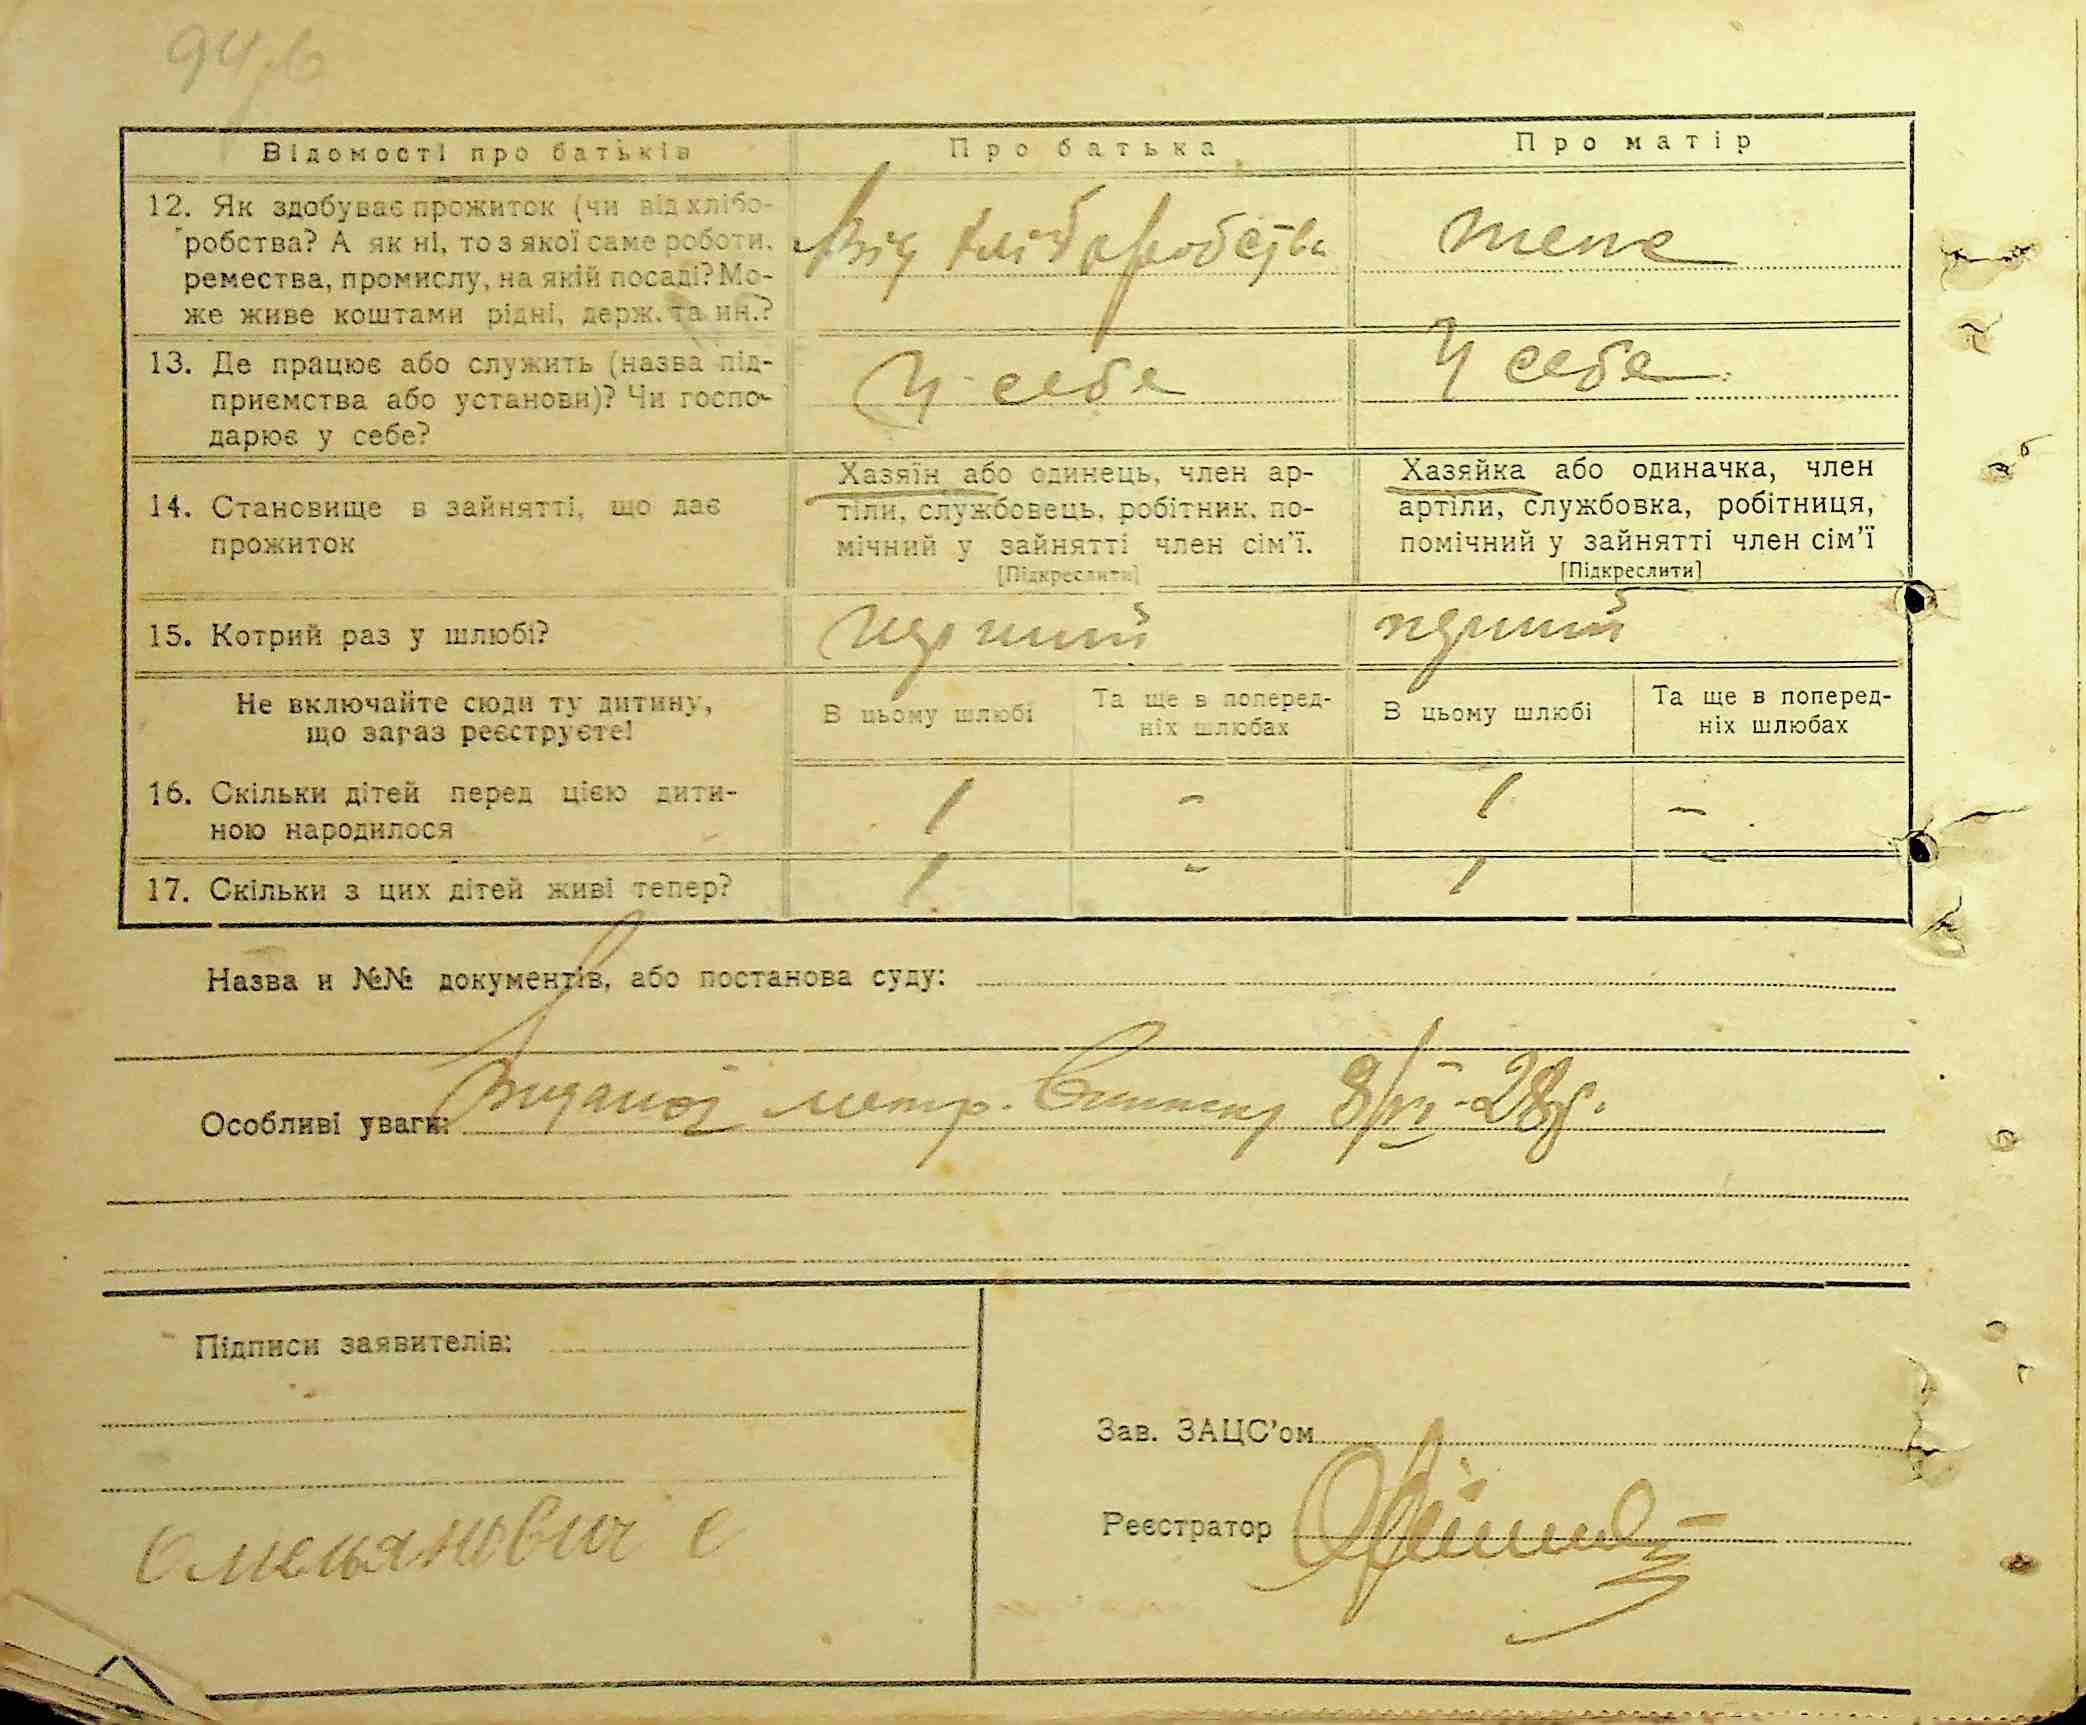 94
Відомості про батьків
Про батька
Про матір
12. Як здобуває прожиток (чи від хлібо-
робства? А як ні, то з якої саме роботи,
ремества, промислу, на якій посаді? Мо-
же живе коштами рідні, держ. та ин.?
Від хліборобства
теж
13. Де працює або служить (назва під-
приємства або установи)? Чи госпо-
дарює у себе?
У себе
У себе
14. Становище в зайнятті, що дає
прожиток
Хазяїн або одинець, член ар-
тіли, службовець, робітник, по-
мічний у зайнятті член сім'ї.
[Підкреслити]
Хазяйка або одиначка, член
артіли, службовка, робітниця,
помічний у зайнятті член сім'ї
[Підкреслити]
15. Котрий раз у шлюбі?
перший
перший
Не включайте сюди ту дитину,
що зараз реєструєте!
В цьому шлюбі
Та ще в поперед-
ніх шлюбах
В цьому шлюбі
Та ще в поперед-
ніх шлюбах
16. Скільки дітей перед цією дити-
ною народилося
1 - 1 -
17. Скільки з цих дітей живі тепер?
1 - 1 -
Назва и №№ документів, або постанова суду:
Особливі уваги: метр. 8/VI-28р.
Підписи заявителів:
Омельянович С
Зав. ЗАЦС'ом
Реєстратор